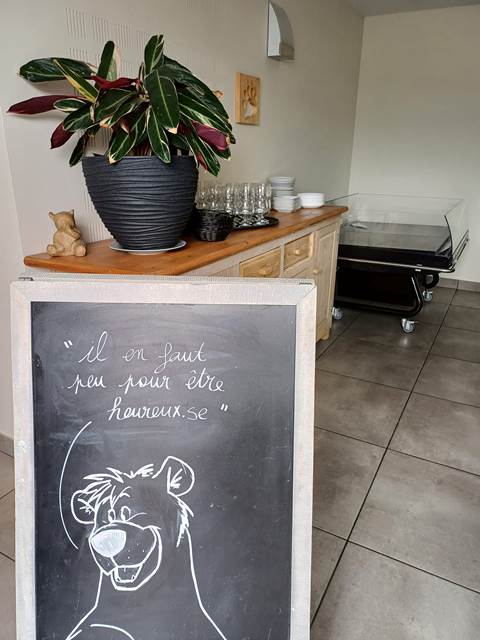 "il en faut
peu pour être
heureux.se"